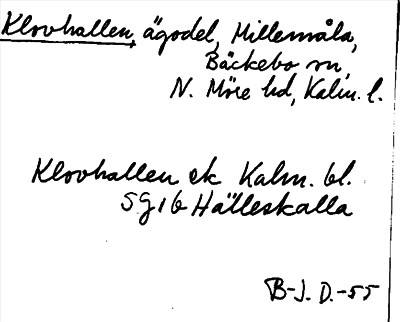 Klovhallen, ägodel, Millemåla,
Bäckebo sn,
N. Möre hd, Kalm. l.
Klovhallen ek Kalm. bl.
5G1b Hälleskalla
B-J. D.-55